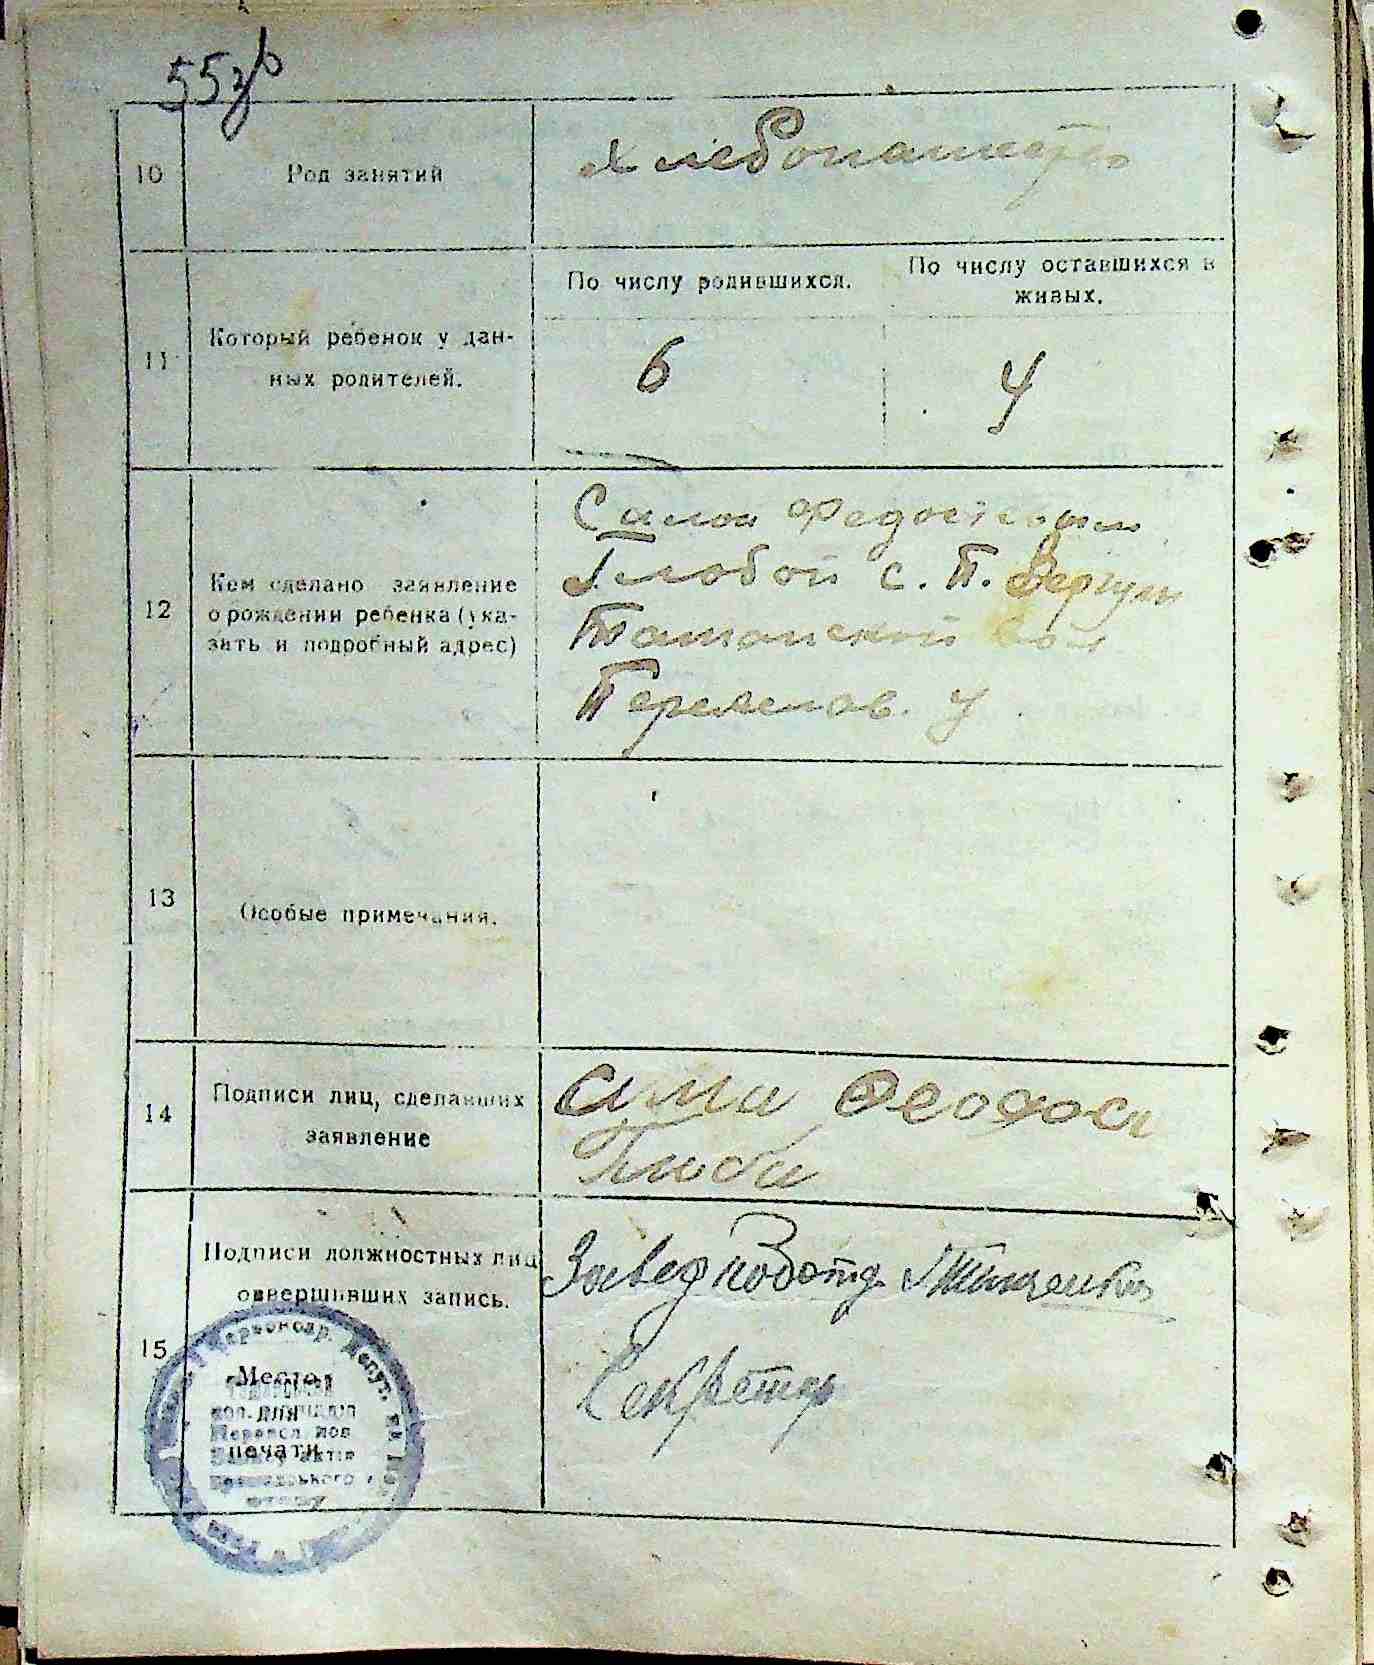 55зв
10
Род занятий
хлебопашество
11
Который ребенок у дан-
ных родителей.
По числу родившихся.
По числу оставшихся в
живых.
6
4
12
Кем сделано заявление
о рождении ребенка (ука-
зать и подробный адрес)
Глобой с. П. Вергуны
Ташанский вол
Переяслов. у
13
Особые примечания.
14
Подписи лиц, сделавших
заявление
Феодос
15
Подписи должностных лиц
совершивших запись.
Завед подотд
Секретар
Червоноар. Депут.
Место
для
печати